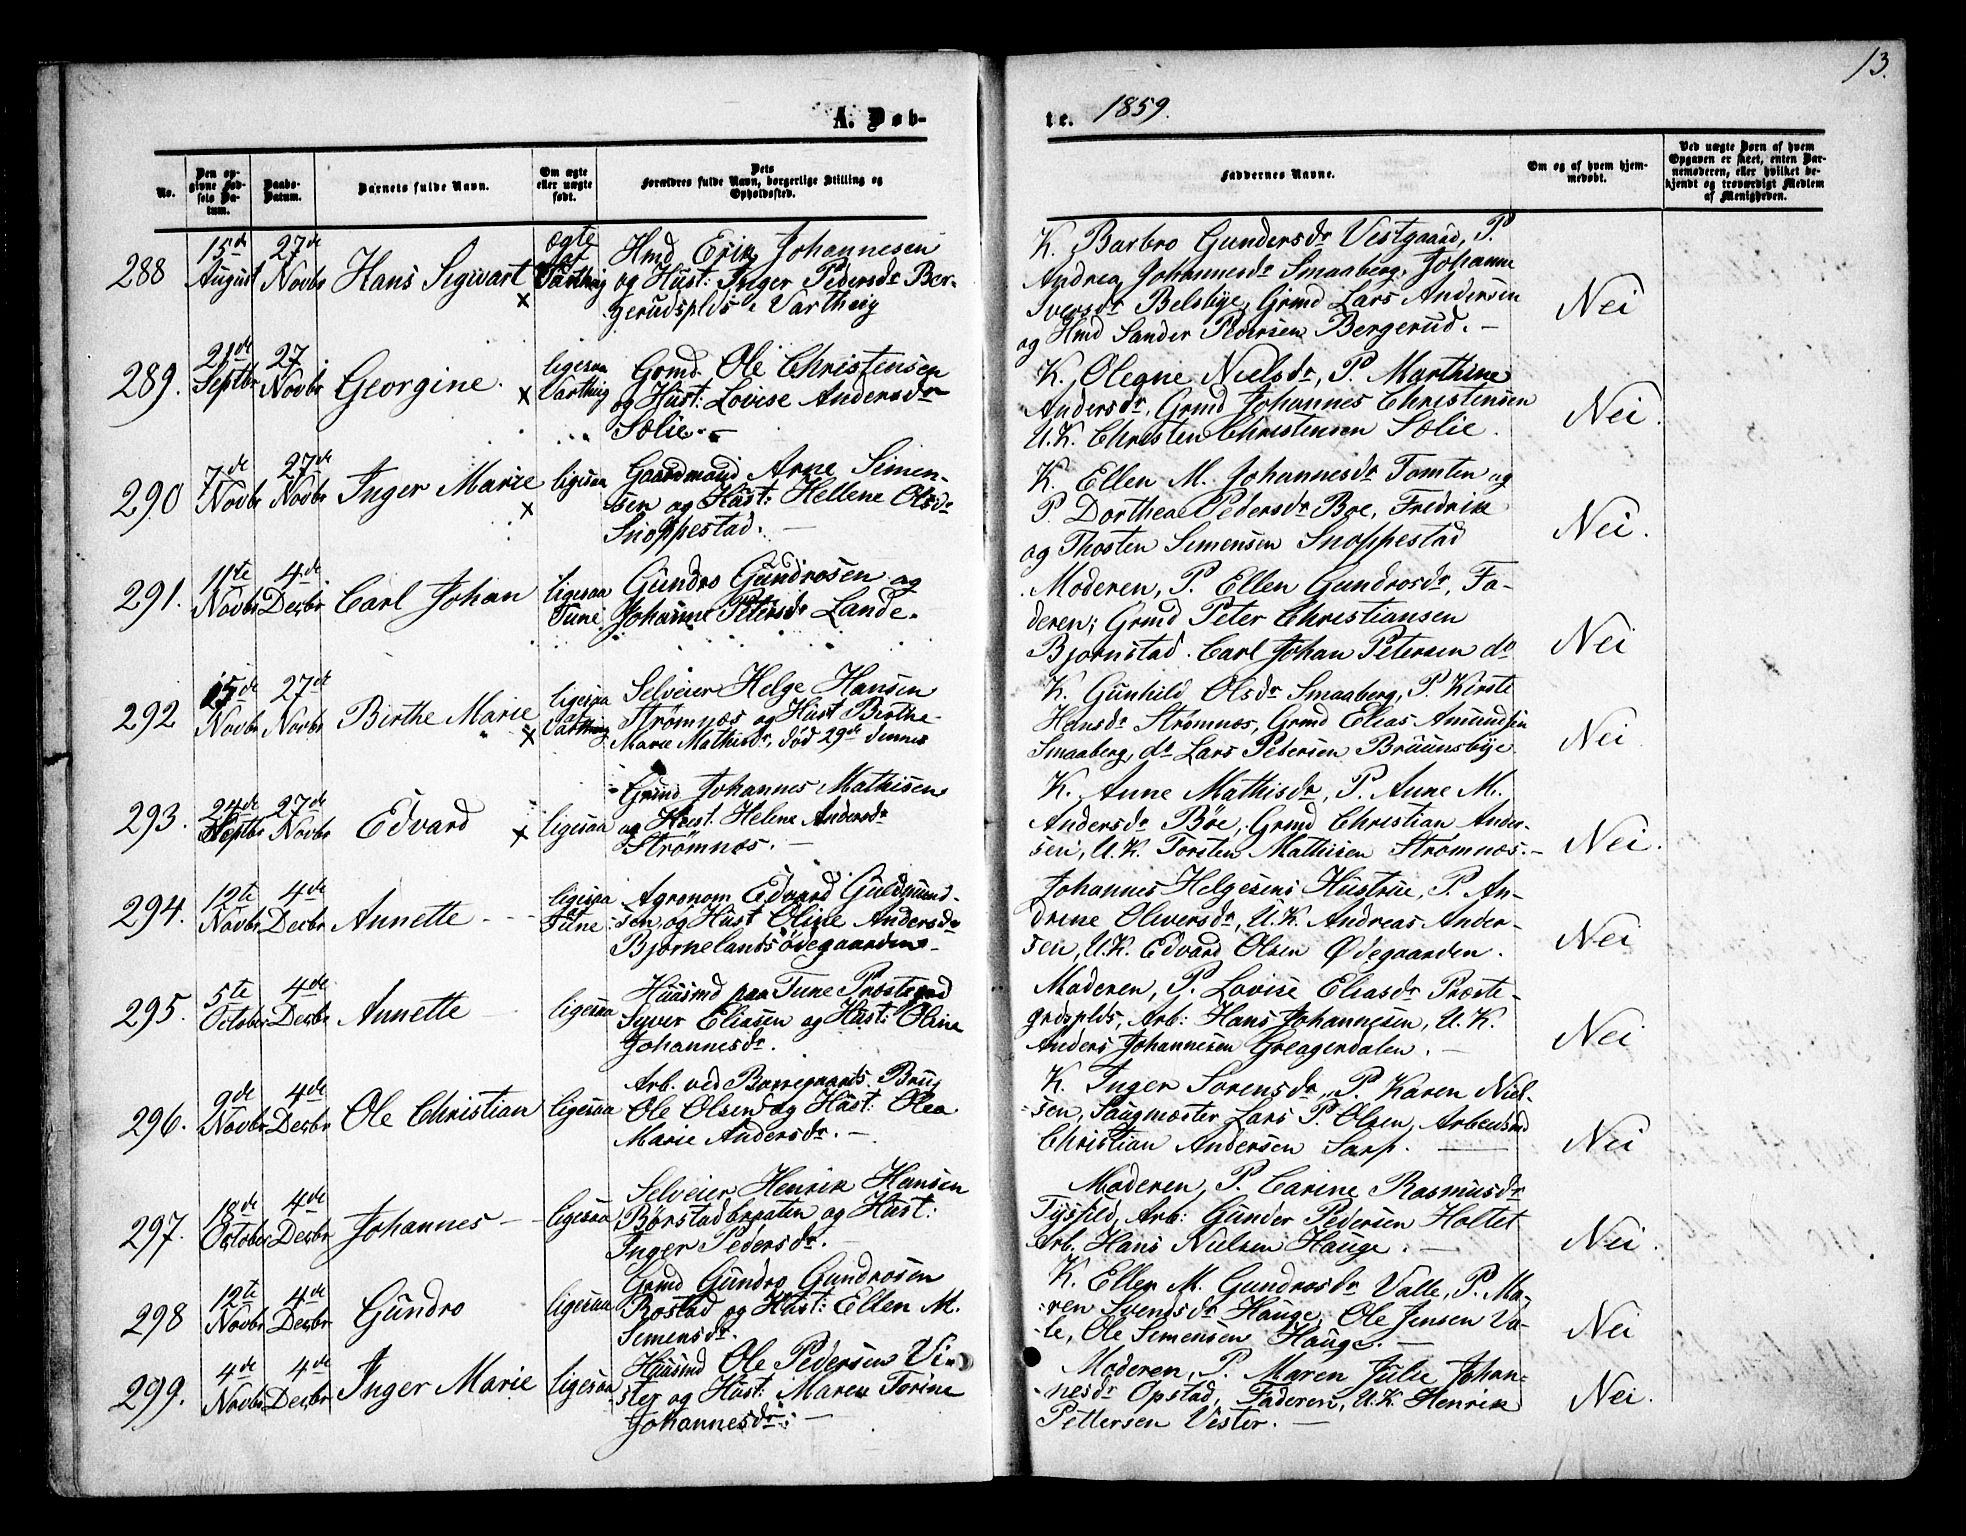 13.
A. Døb-
te. 1859.
No.
Den op-
givne Fød-
sels Da-
tum.
Daabs-
Datum.
Barnets fulde Navn.
Om ægte
eller uægte
født.
Dets
Forældres fulde Navn, borgerlige Stilling og
Opholdssted.
Faddernes Navne.
Om og af hvem hjem-
medøbt.
Ved uægte Børn af hvem
Opgaven er skeet, enten Bar-
nemoderen, eller hvilket be-
kjendt og troværdigt Medlem
af Menigheden.
288
15de
August
27de
Novbr
Hans Sigvart
x
ægte
af
Varteig
Hmd Erik Johannesen
og Hust: Inger Pedersdr Ber-
gerudsplds i Vartheig
K. Barbro Gundersdr Vestgaard, P.
Andrea Johannesdr Smaaberg, Johanne
Iversdr Belsbye, Grmd Lars Andersen
og Hmd Sander Pedersen Bergerud. –
Nei
289.
21de
Septbr
27
Novbr
Georgine.
x
ligesaa
Vartheig
Grmd. Ole Christensen
og Hust: Lovise Andersdr
Sælie. –
K. Olegne Nielsdr, P. Marthine
Andersdr, Grmd Johannes Christensen
U.K. Christen Christensen Sælie.
Nei.
290
7de
Novbr
27de
Novbr
Inger Marie
x
ligesaa
Gaardmand Arne Simen-
sen og Hust: Hellene Olsdr
Snoppestad. –
K. Ellen M. Johannesdr Tomten og
P. Dorthea Pedersdr Boe, Fredrik
og Thosten Simensen Snoppestad
Nei.
291.
11te
Novbr
4de
Decbr
Carl Johan
ligesaa
Tune
Gundro Gundrosen og
Johanne Petersdr Lande.
Moderen, P. Ellen Gundrosdr, Fa-
deren; Grmd Peter Christiansen
Bjørnstad. Carl Johan Petersen do
Nei
292
15de
Novbr
27de
Novbr
Birthe Marie
x
ligesaa
af
Vartheig
Selveier Helge Hansen
Strømnæs og Hust Birthe
Marie Mathisdr, død 29de dennes
K. Gunhild Olsdr Smaaberg, P. Kirste
Hansdr Strømnæs, Grmd Elias Amundsen
Smaaberg, do Lars Pedersen Bruunsbye
Nei
293.
24de
Septbr
27de
Novbr
Edvard
x
ligesaa
Grmd Johannes Mathisen
og Hust. Helene Andersdr
Strømnæs. –
K. Anne Mathisdr, P. Anne M.
Andersdr Bøe, Grmd Christian Ander-
sen, U.K. Torsten Mathisen Strømnæs. –
Nei.
294.
12te
Novbr
4de
Decbr
Annette
ligesaa
Tune
Agronom Edvard Guldmund-
sen og Hust Oline Andersdr
Bjørnelandsødegaarden
Johannes Helgesens Hustrue, P. An-
drine Oliversdr, U.K. Andreas Ander-
sen, U.K. Edvard Olsen Ødegaarden.
Nei
295.
5te
October
4de
Decbr
Annette
ligesaa
Huusmd paa Tune Præstegrd
Syver Eliasen og Hust: Oline
Johannesdr.
Moderen, P. Lovise Eliasdr Præste-
grdsplds, Arb: Hans Johannesen, U.K.
Anders Johannesen Greagerdalen. –
Nei
296.
9de
Novbr
4de
Decbr
Ole Christian
ligesaa
Arb. ved Borregaards Brug
Ole Olsen og Hust: Olea
Marie Andersdr. –
K. Inger Sorensdr, P. Karen Niel-
sen, Saugmester Lars P. Olsen, Arbeidsmd
Christian Andersen Sarp. –
Nei
297.
18de
October
4de
Decbr
Johannes –
ligesaa
Selveier Henrik Hansen
Børstadbraaten og Hust:
Inger Pedersdr. –
Moderen, P. Carine Rasmusdr
Arb: Gunder Pedersen Holtet
Arb. Hans Nielsen Hauge. –
Nei.
298
12te
Novbr
4de
Decbr
Gundro
ligesaa
Grmd Gundro Gundrosen
Rostad og Hust: Ellen M.
Simensdr.
K. Ellen M. Gundrosdr Valle, P. Ma-
ren Svendsdr Hauge, Ole Jensen Va-
le, Ole Simensen Hauge. –
Nei
299.
4de
Novbr
4de
Decbr
Inger Marie
ligesaa
Huusmd Ole Pedersen Ve-
ster og Hust: Maren Torine
Johannesdr. –
Moderen, P. Maren Julie Johan-
nesdr Opstad, Faderen, U.K. Henrik
Pettersen Vester. –
Nei.